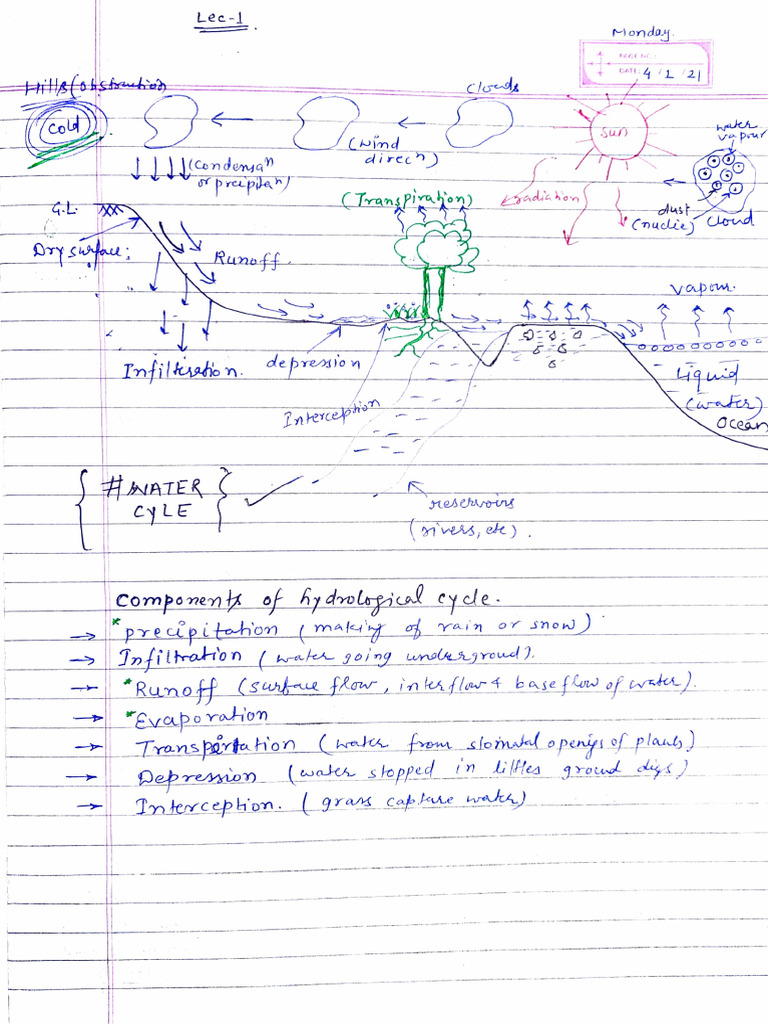 Lec-1
Monday.
PAGE NO.:
DATE: 4 / 1 / 21
Hills (obstruction
clouds
cold
sun
water
vapour
(wind
direcn)
(condensan
or precipitan)
(Transpiration)
radiation
dust
(nuclie)
cloud
G.L.
Dry surface;
Runoff.
vapour.
Infiltration.
depression
Interception
Liquid
(water)
Ocean
{ #WATER
CYLE }
reservoirs
(rivers, etc).
Components of hydrological cycle.
* → precipitation (making of rain or snow)
→ Infiltration (water going undergroud).
→ *Runoff (surface flow, interflow & base flow of water).
→ *Evaporation
→ (water from stomatal openigs of plants)
→ Depression (water stopped in littles ground digs)
→ Interception. (grass capture water)